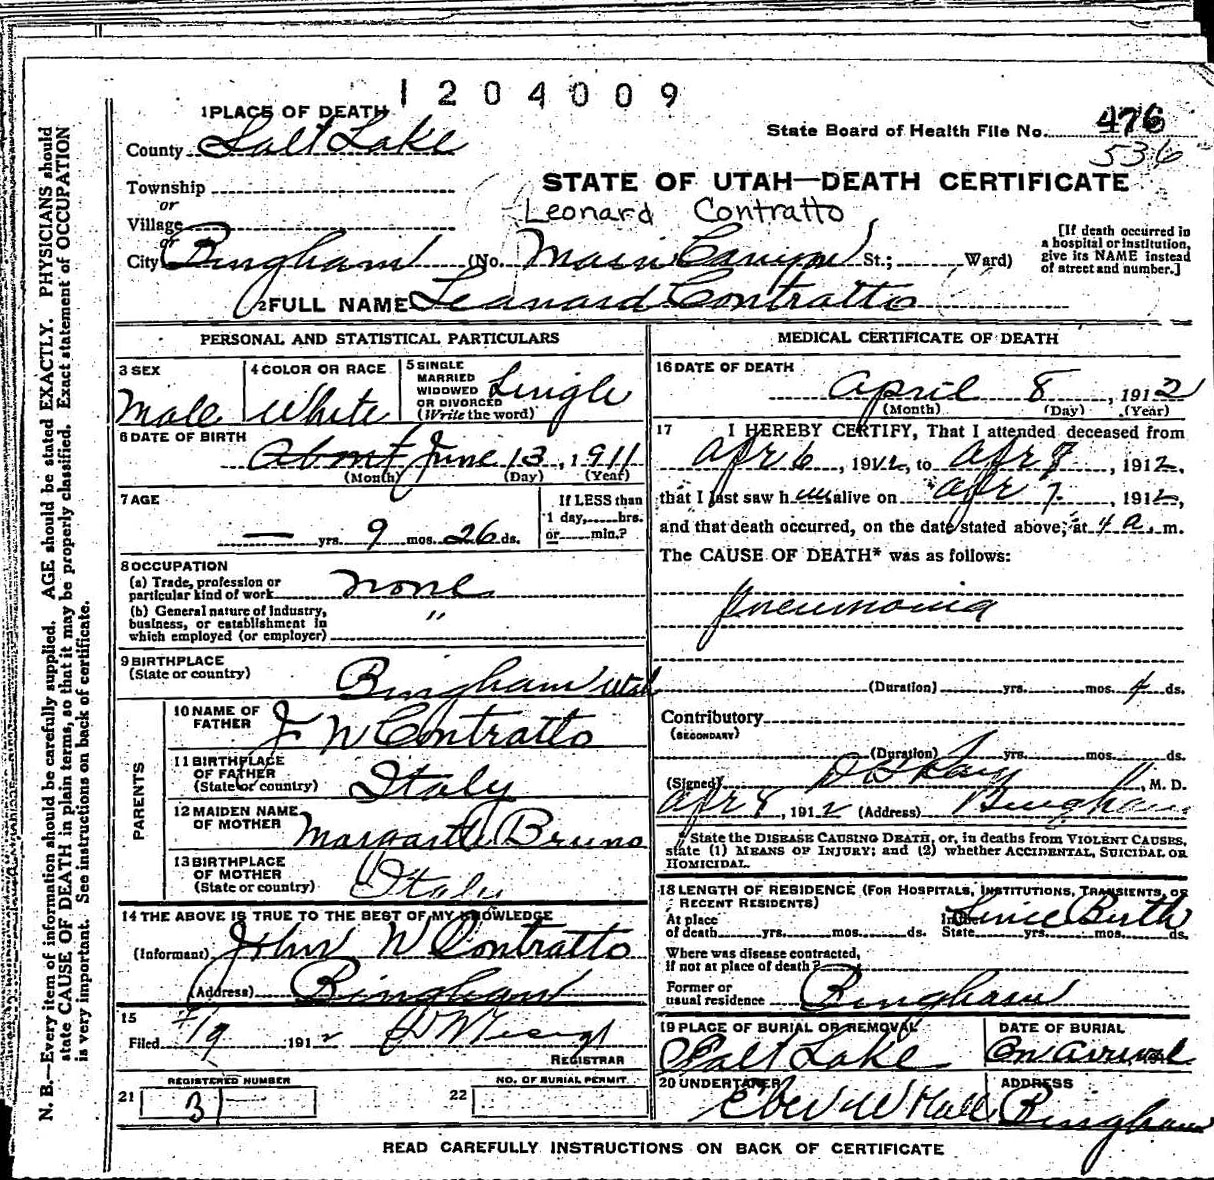 1204009
1 PLACE OF DEATH
State Board of Health File No. 476
536
County Salt Lake
STATE OF UTAH—DEATH CERTIFICATE
Township
or
Village
or
Leonard Contratto
City Bingham (No. Main Canyon St.; Ward)
[If death occurred in
a hospital or institution,
give its NAME instead
of street and number.]
2 FULL NAME Leanard Contratto
PERSONAL AND STATISTICAL PARTICULARS
3 SEX
Male
4 COLOR OR RACE
White
5 SINGLE
MARRIED
WIDOWED
OR DIVORCED
(Write the word)
Single
6 DATE OF BIRTH
About June 13, 1911
(Month) (Day) (Year)
7 AGE
— yrs. 9 mos. 26 ds.
If LESS than
1 day, hrs.
or min.?
8 OCCUPATION
(a) Trade, profession or
particular kind of work none
(b) General nature of industry,
business, or establishment in
which employed (or employer)
"
9 BIRTHPLACE
(State or country)
Bingham Utah
PARENTS
10 NAME OF
FATHER
J W Contratto
11 BIRTHPLACE
OF FATHER
(State or country)
Italy
12 MAIDEN NAME
OF MOTHER
Bruno
13 BIRTHPLACE
OF MOTHER
(State or country)
Italy
14 THE ABOVE IS TRUE TO THE BEST OF MY KNOWLEDGE
(Informant) John W Contratto
(Address) Bingham
15
Filed 1912
REGISTRAR
REGISTERED NUMBER
21 31
NO. OF BURIAL PERMIT
22
MEDICAL CERTIFICATE OF DEATH
16 DATE OF DEATH
April 8, 1912
(Month) (Day) (Year)
17 I HEREBY CERTIFY, That I attended deceased from
Apr 6, 1912, to Apr 8, 1912,
that I last saw him alive on Apr 7, 1912,
and that death occurred, on the date stated above, at 4 a. m.
The CAUSE OF DEATH* was as follows:
Pneumonia
(Duration) yrs. mos. 4 ds.
Contributory
(SECONDARY)
(Duration) yrs. mos. ds.
(Signed) M. D.
Apr 8, 1912 (Address) Bingham
* State the DISEASE CAUSING DEATH, or, in deaths from VIOLENT CAUSES,
state (1) MEANS OF INJURY; and (2) whether ACCIDENTAL, SUICIDAL OR
HOMICIDAL.
18 LENGTH OF RESIDENCE (FOR HOSPITALS, INSTITUTIONS, TRANSIENTS, OR
RECENT RESIDENTS)
At place
of death yrs. mos. ds.
In the
State yrs. mos. ds.
Since Birth
Where was disease contracted,
if not at place of death?
Former or
usual residence Bingham
19 PLACE OF BURIAL OR REMOVAL
Salt Lake
DATE OF BURIAL
On arrival
20 UNDERTAKER
Eber W Hall
ADDRESS
Bingham
READ CAREFULLY INSTRUCTIONS ON BACK OF CERTIFICATE
N. B.—Every item of information should be carefully supplied. AGE should be stated EXACTLY. PHYSICIANS should
state CAUSE OF DEATH in plain terms, so that it may be properly classified. Exact statement of OCCUPATION
is very important. See instructions on back of certificate.